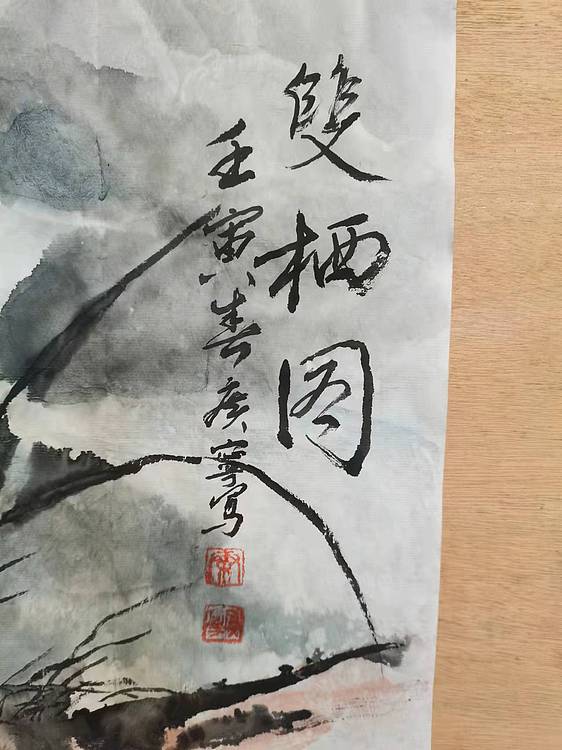 雙栖图
壬寅春庚寧写